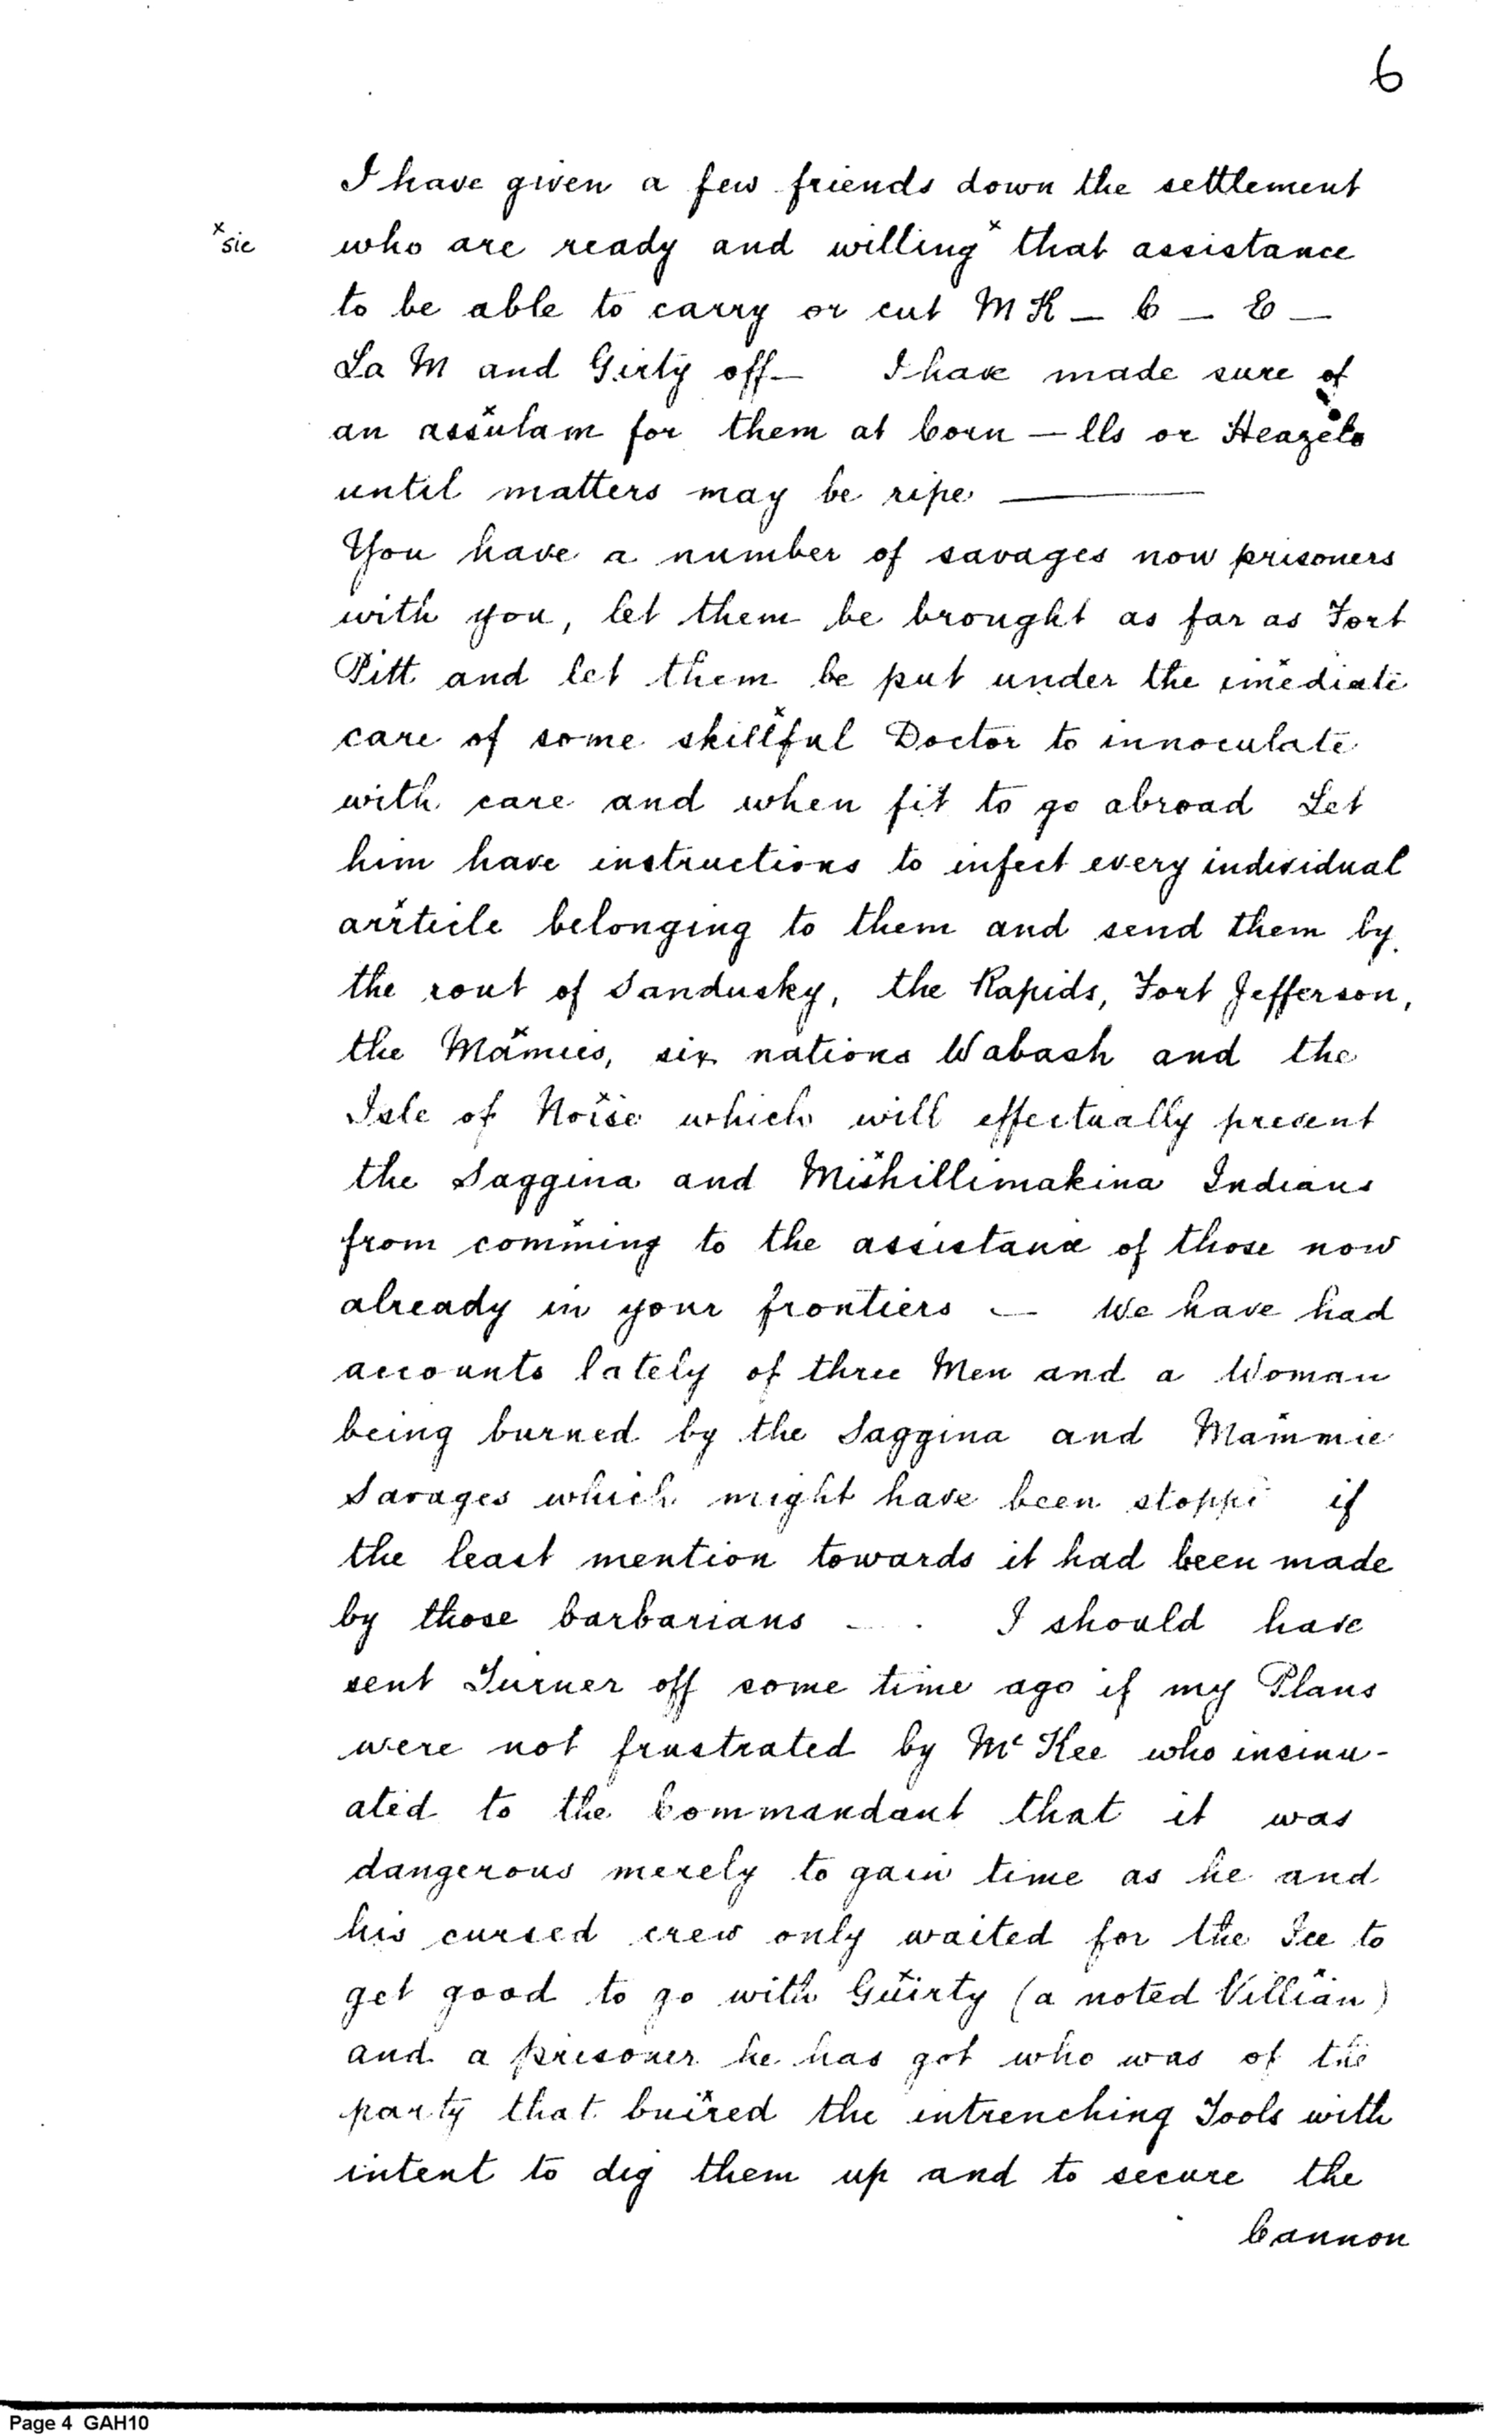 6
I have given a few friends down the settlement
xsic who are ready and willing x that assistance
to be able to carry or cut M K — C — E —
La M and Girty off — I have made sure of
an assulam for them at Corn — lls or Heazels
until matters may be ripe ———
You have a number of savages now prisoners
with you, let them be brought as far as Fort
Pitt and let them be put under the imediate
care of some skillful Doctor to innoculate
with care and when fit to go abroad Let
him have instructions to infect every individual
arrticle belonging to them and send them by
the rout of Sandusky, the Rapids, Fort Jefferson,
the Mamies, six nations Wabash and the
Isle of Noise which will effectually prevent
the Saggina and Mishillimakina Indians
from comming to the assistance of those now
already in your frontiers — We have had
accounts lately of three Men and a Woman
being burned by the Saggina and Mammie
Savages which might have been stoppe if
the least mention towards it had been made
by those barbarians — . I should have
sent Turner off some time ago if my Plans
were not frustrated by Mc Kee who insinu-
ated to the Commandant that it was
dangerous merely to gain time as he and
his cursed crew only waited for the Ice to
get good to go with Guirty (a noted Villian)
and a prisoner he has got who was of the
party that buired the intrenching Tools with
intent to dig them up and to secure the
Cannon
Page 4 GAH10